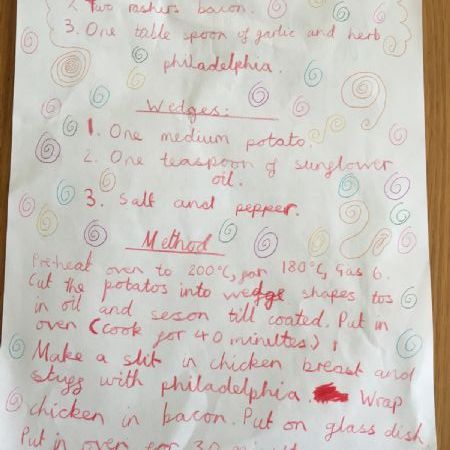 2. Two rashers bacon.
3. One table spoon of garlic and herb
philadelphia.
Wedges:
1. One medium potato.
2. One teaspoon of sunflower
oil.
3. Salt and pepper.
Method
Pre-heat oven to 200°C, fan 180°C, Gas 6.
Cut the potatos into wedge shapes tos
in oil and seson till coated. Put in
oven (cook for 40 minutes)
Make a slit in chicken breast and
stuff with philadelphia. Wrap
chicken in bacon. Put on glass dish.
Put in oven for 30